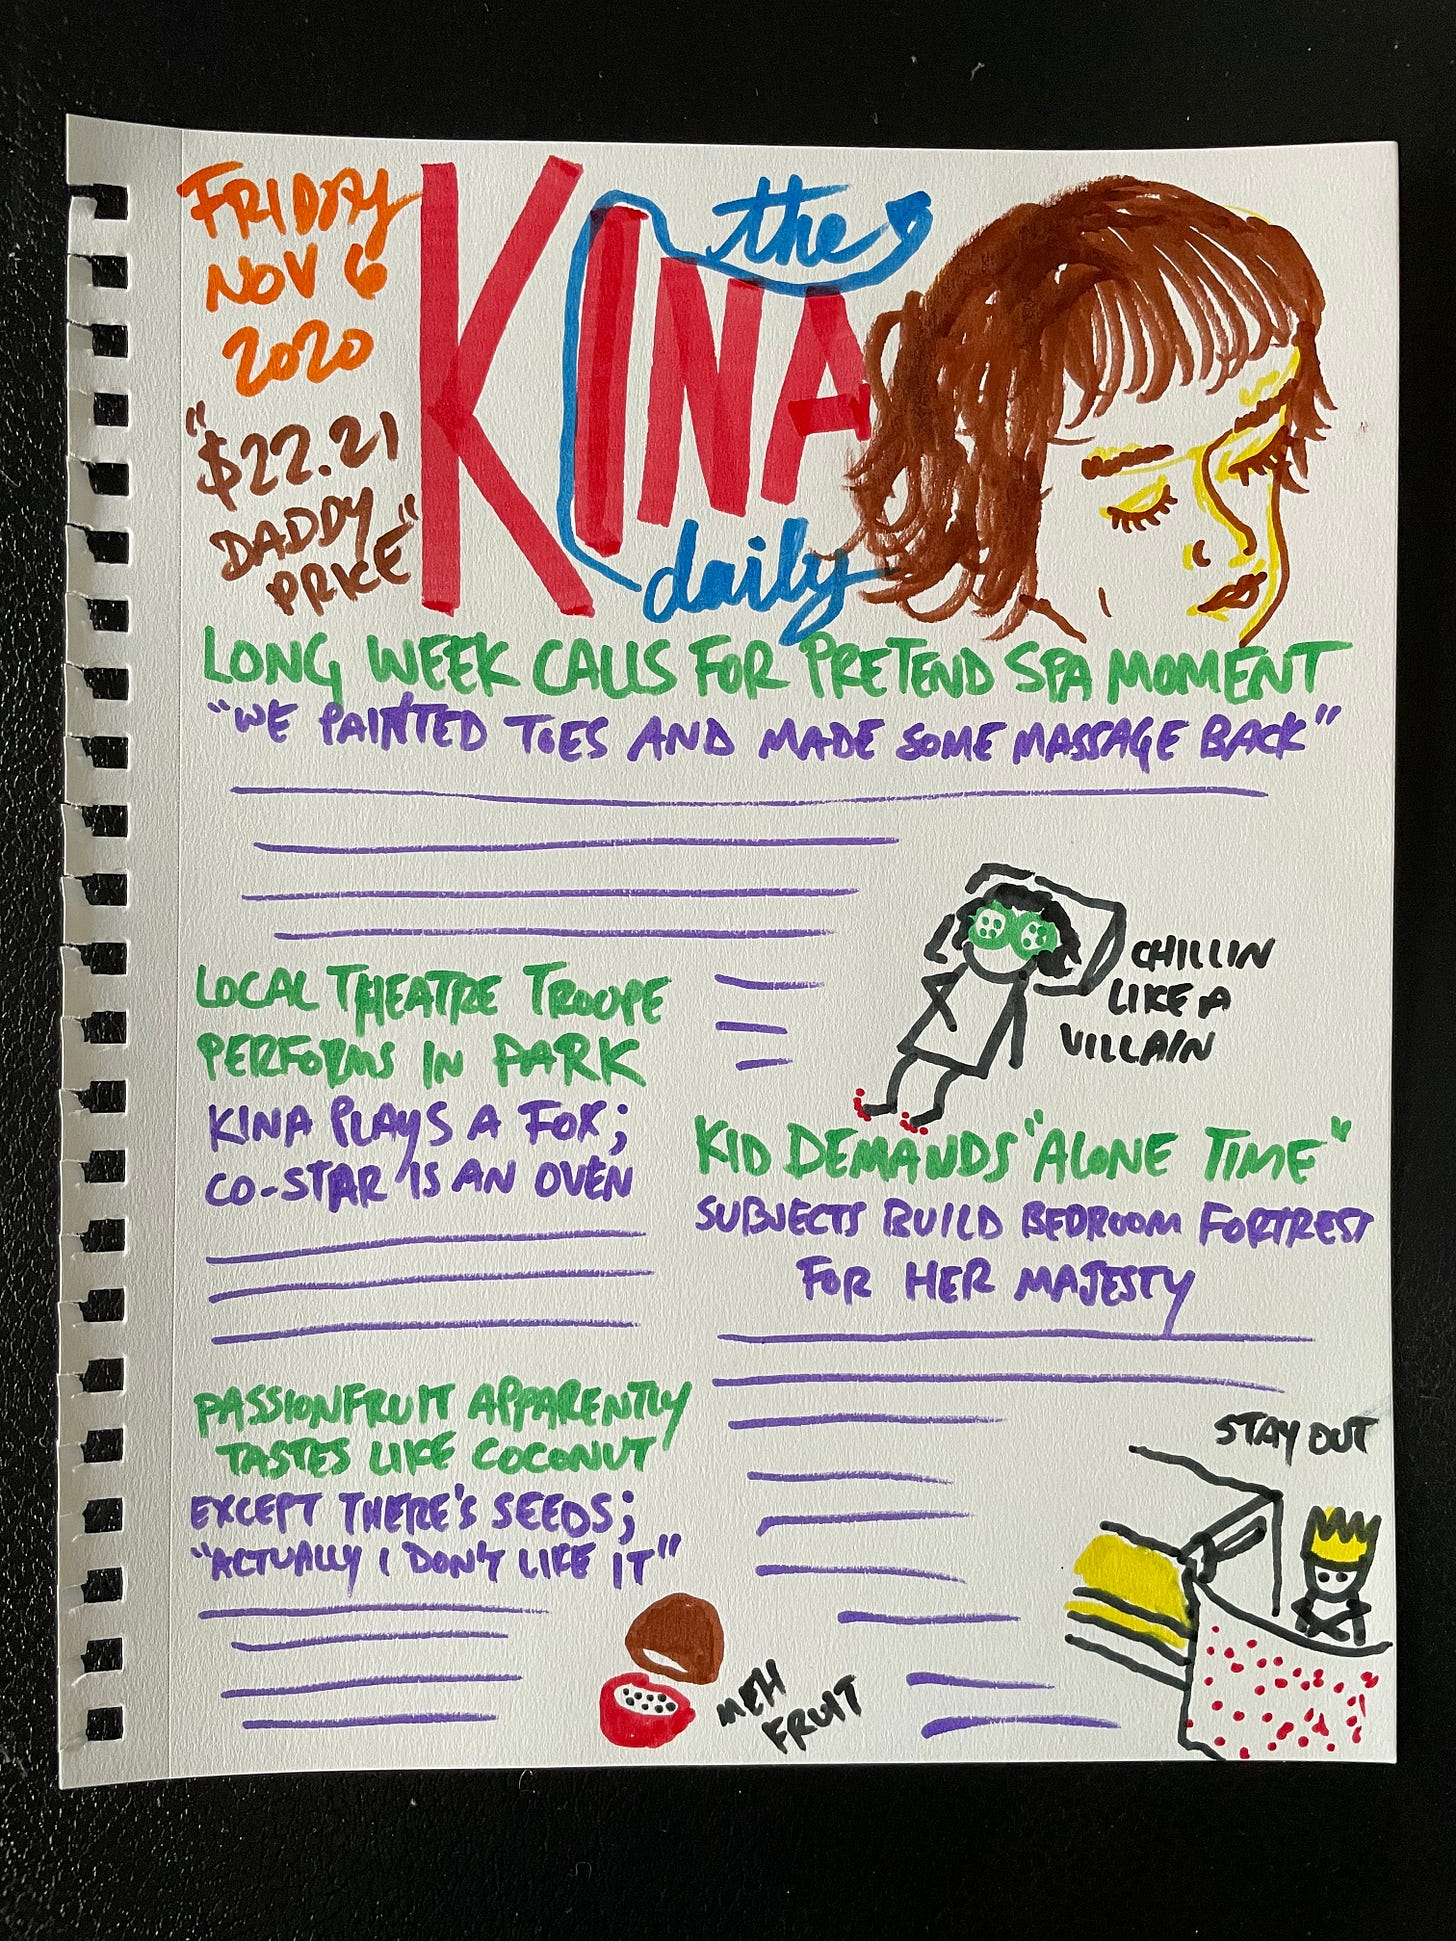 FRIDAY
NOV 6
2020
"$22.21
DADDY
PRICE"
the
KINA
daily
LONG WEEK CALLS FOR PRETEND SPA MOMENT
"WE PAINTED TOES AND MADE SOME MASSAGE BACK"
CHILLIN
LIKE A
VILLAIN
LOCAL THEATRE TROUPE
PERFORMS IN PARK
KINA PLAYS A FOX;
CO-STAR IS AN OVEN
KID DEMANDS "ALONE TIME"
SUBJECTS BUILD BEDROOM FORTREST
FOR HER MAJESTY
STAY OUT
PASSIONFRUIT APPARENTLY
TASTES LIKE COCONUT
EXCEPT THERE'S SEEDS;
"ACTUALLY I DON'T LIKE IT"
MEH
FRUIT